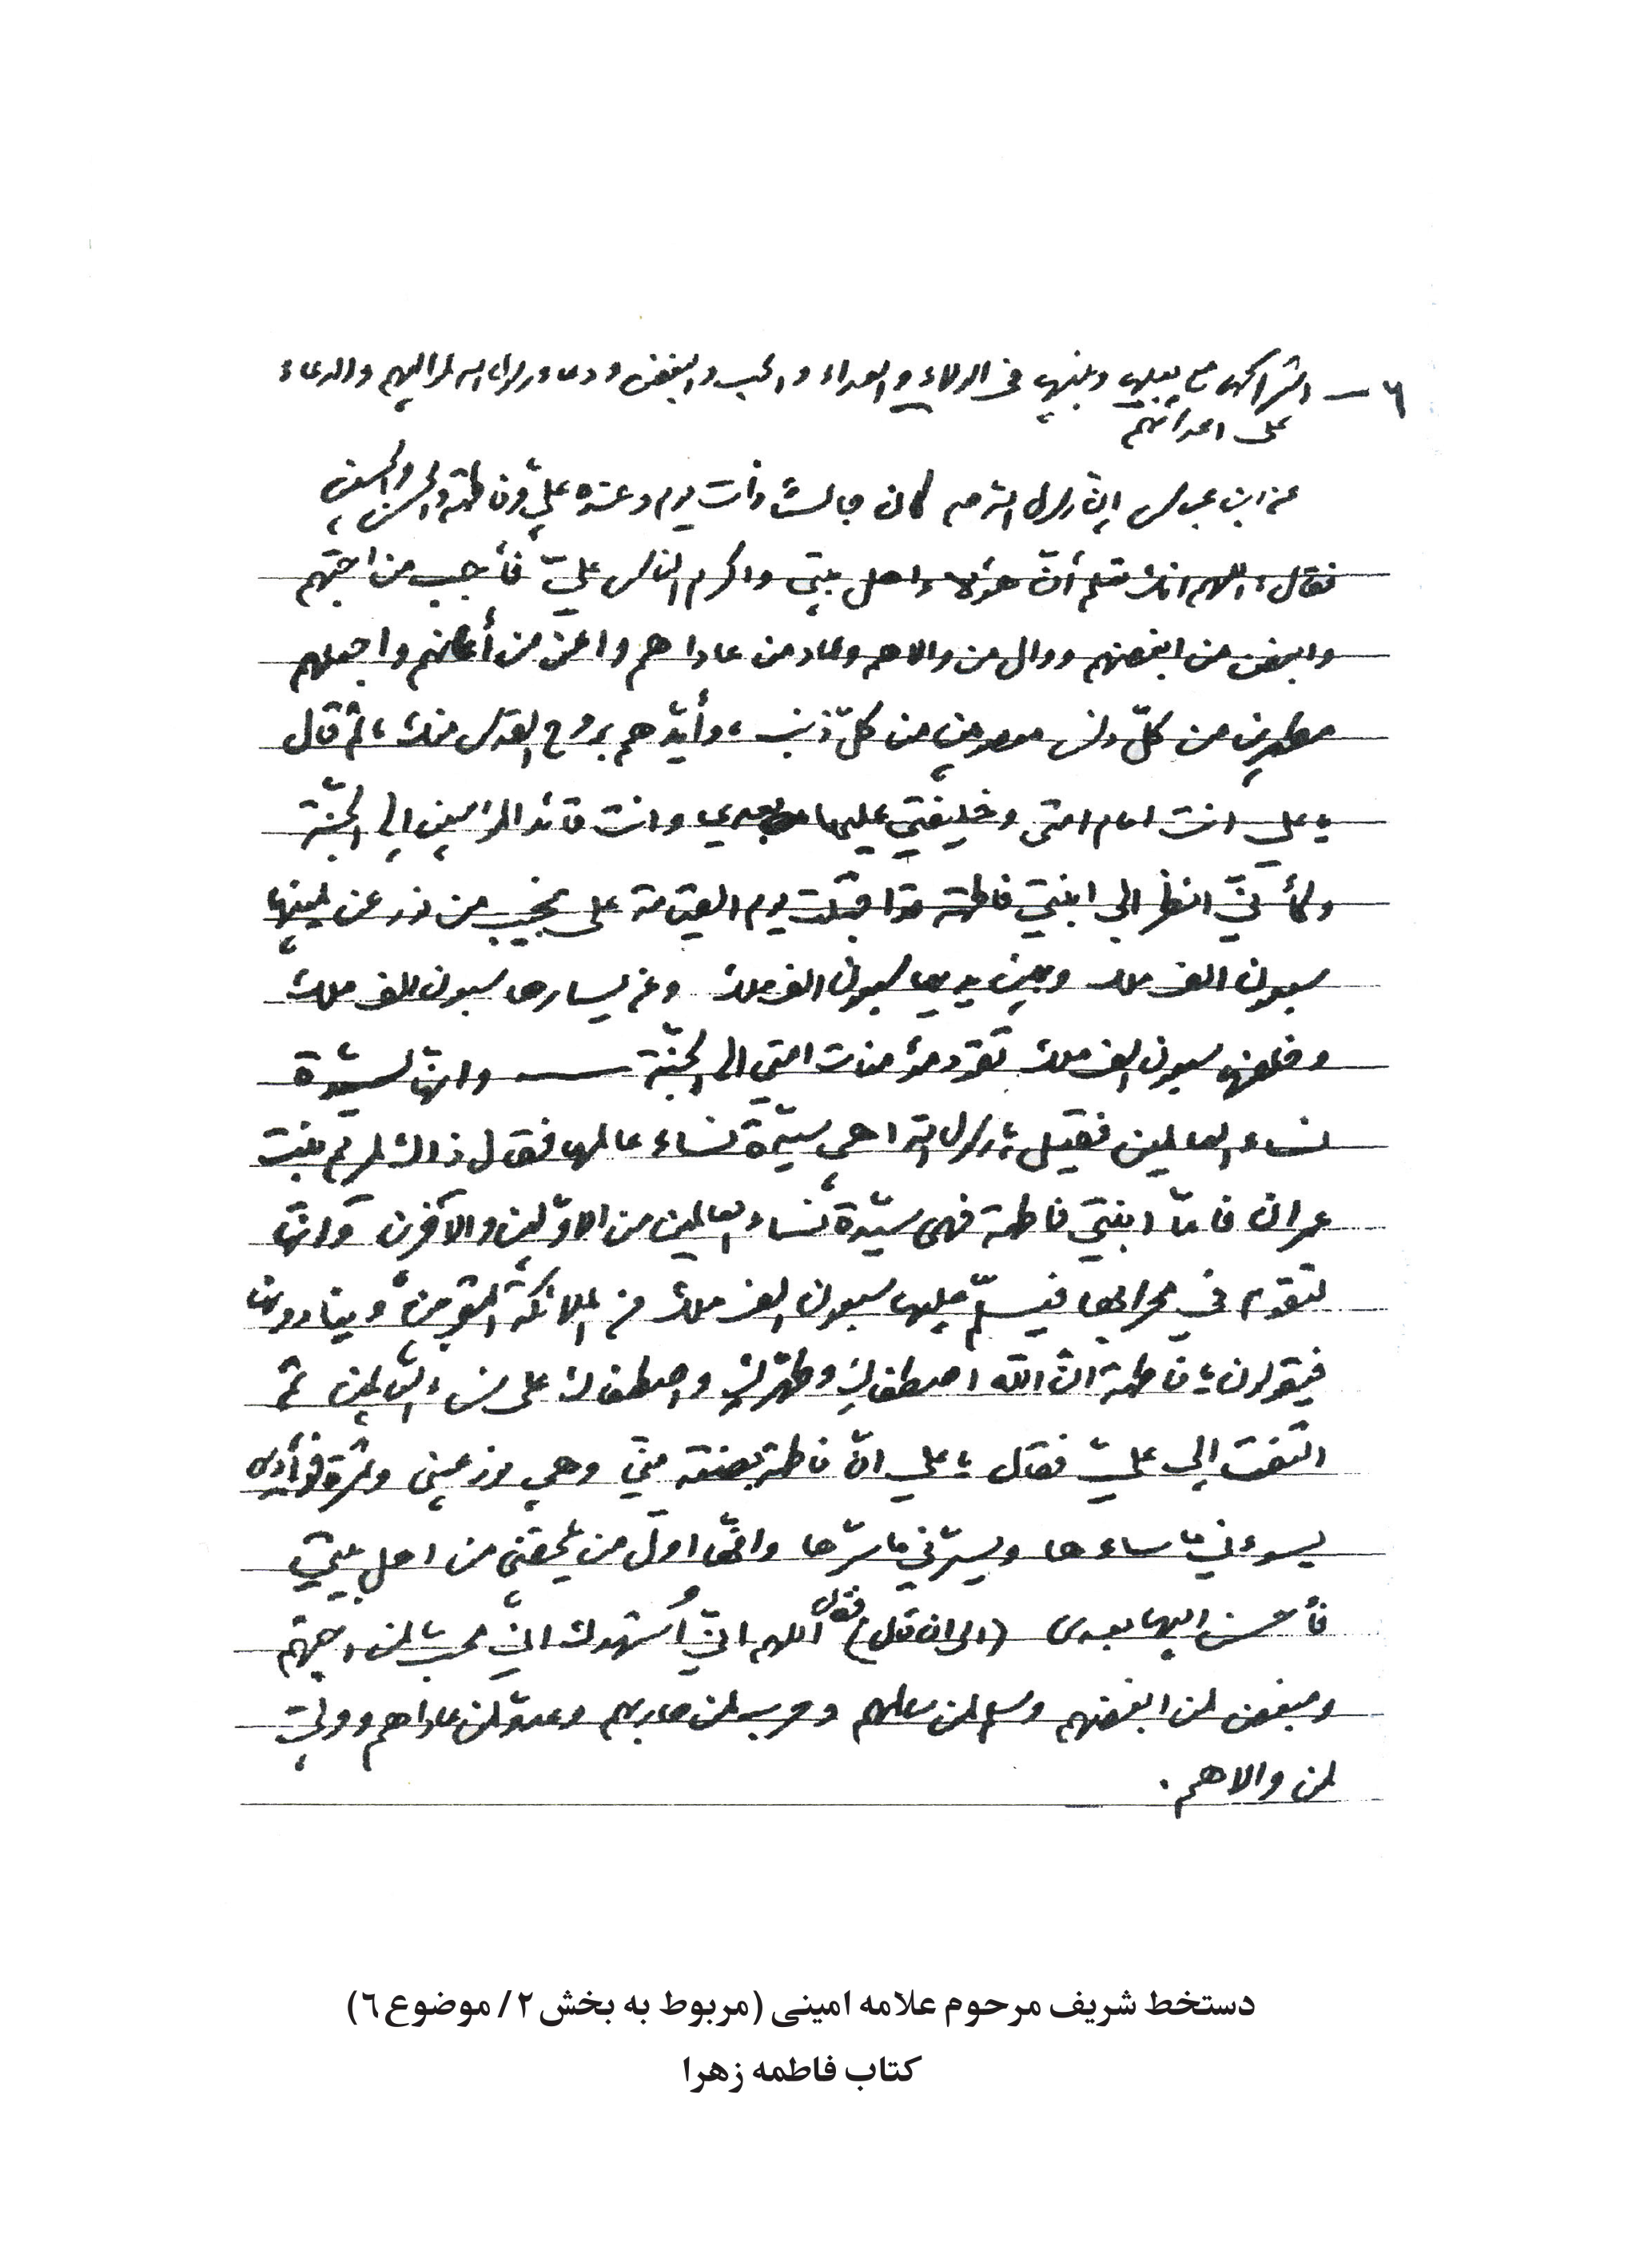 ٦ — اشتراكها مع بعلها وبنيها فى الولاء والعداء والحب والبغض ودعاء رسول الله لمواليهم والدعاء
على اعدائهم
عن ابن عباس إنّ رسول الله ص كان جالساً ذات يوم وعنده عليّ وفاطمة والحسن والحسين
فقال: اللهم انك تعلم أنّ هؤلاء اهل بيتي واكرم الناس عليّ فأحبب من احبّهم
وابغض من ابغضهم ووال من والاهم وعاد من عاداهم واعن من أعانهم واجعلهم
مطهرين من كلّ دنس معصومين من كلّ ذنب، وأيّدهم بروح القدس منك، ثمّ قال
يا علي انت امام امتى وخليفتي عليها بعدي وانت قائد المؤمنين إلى الجنّة
وكأنّي انظر إلى ابنتي فاطمة قد اقبلت يوم القيامة على نجيب من نور عن يمينها
سبعون الف ملك وبين يديها سبعون الف ملك وعن يسارها سبعون الف ملك
وخلفها سبعون الف ملك تقود مؤمنات امتي الى الجنّة — وانّها لسيّدة
نساء العالمين فقيل يا رسول الله اهي سيّدة نساء عالمها فقال ذاك لمريم بنت
عمران فامّا ابنتي فاطمة فهى سيّدة نساء العالمين من الاوّلين والآخرين وانّها
لتقوم في محرابها فيسلّم عليها سبعون الف ملك من الملائكة المقربين وينادونها
فيقولون يا فاطمة انّ الله اصطفاكِ وطهّركِ واصطفاك على نساء العالمين ثمّ
التفت إلى عليّ فقال يا علي انّ فاطمة بضعة منّي وهي نور عيني وثمرة فؤادي
يسوءني ما ساءها ويسرّني ما سرّها وانّها اوّل من يلحقنى من اهل بيتي
فأحسن اليها بعدى (الى ان قال) فقال اللهم انّي أُشهدك انّي محبّ لمن احبّهم
ومبغض لمن ابغضهم وسلم لمن سالمهم وحرب لمن حاربهم وعدوّ لمن عاداهم ووليّ
لمن والاهم.
دستخط شریف مرحوم علامه امینی (مربوط به بخش ۲/ موضوع ٦)
کتاب فاطمه زهرا